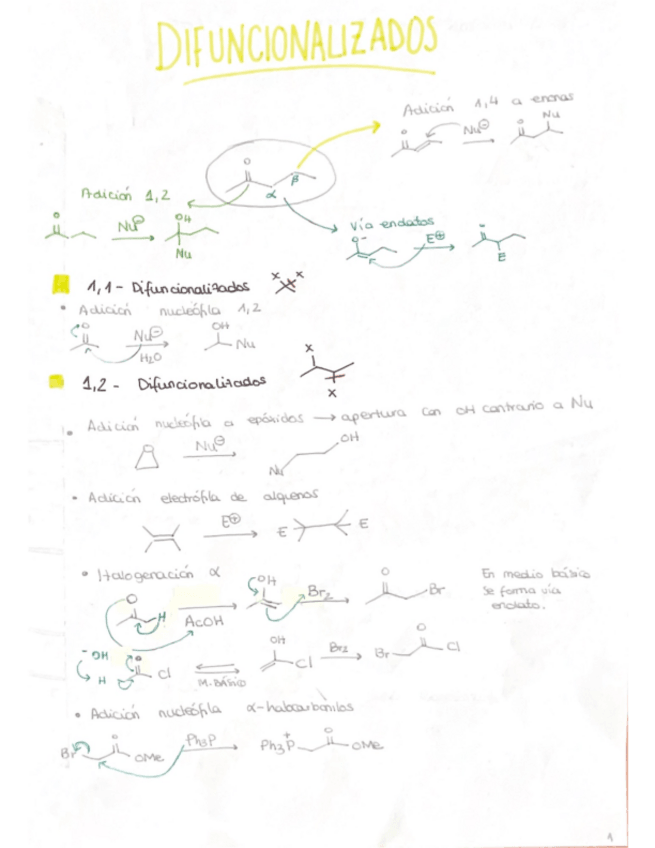 DIFUNCIONALIZADOS
Adición 1,4 a enonas
O Nu⊖ O Nu
O
α β
Adición 1,2
O Nu⊖ OH
Nu
Vía enolatos
O⁻ E⊕ O
E
1,1- Difuncionalizados x x
• Adición nucleófila 1,2
O Nu⊖ OH
H₂O Nu
1,2 - Difuncionalizados x
x
• Adición nucleófila a epóxidos → apertura con OH contrario a Nu
O Nu⊖ OH
Nu
• Adición electrófila de alquenos
E⊕ E E
• Halogenación α
O H AcOH OH Br₂ O Br
En medio básico
se forma vía
enolato.
⁻OH H O Cl M.BÁSICO OH Cl Br₂ Br O Cl
• Adición nucleófila α-halocarbonilos
Br O OMe Ph₃P Ph₃P⁺ O OMe
1